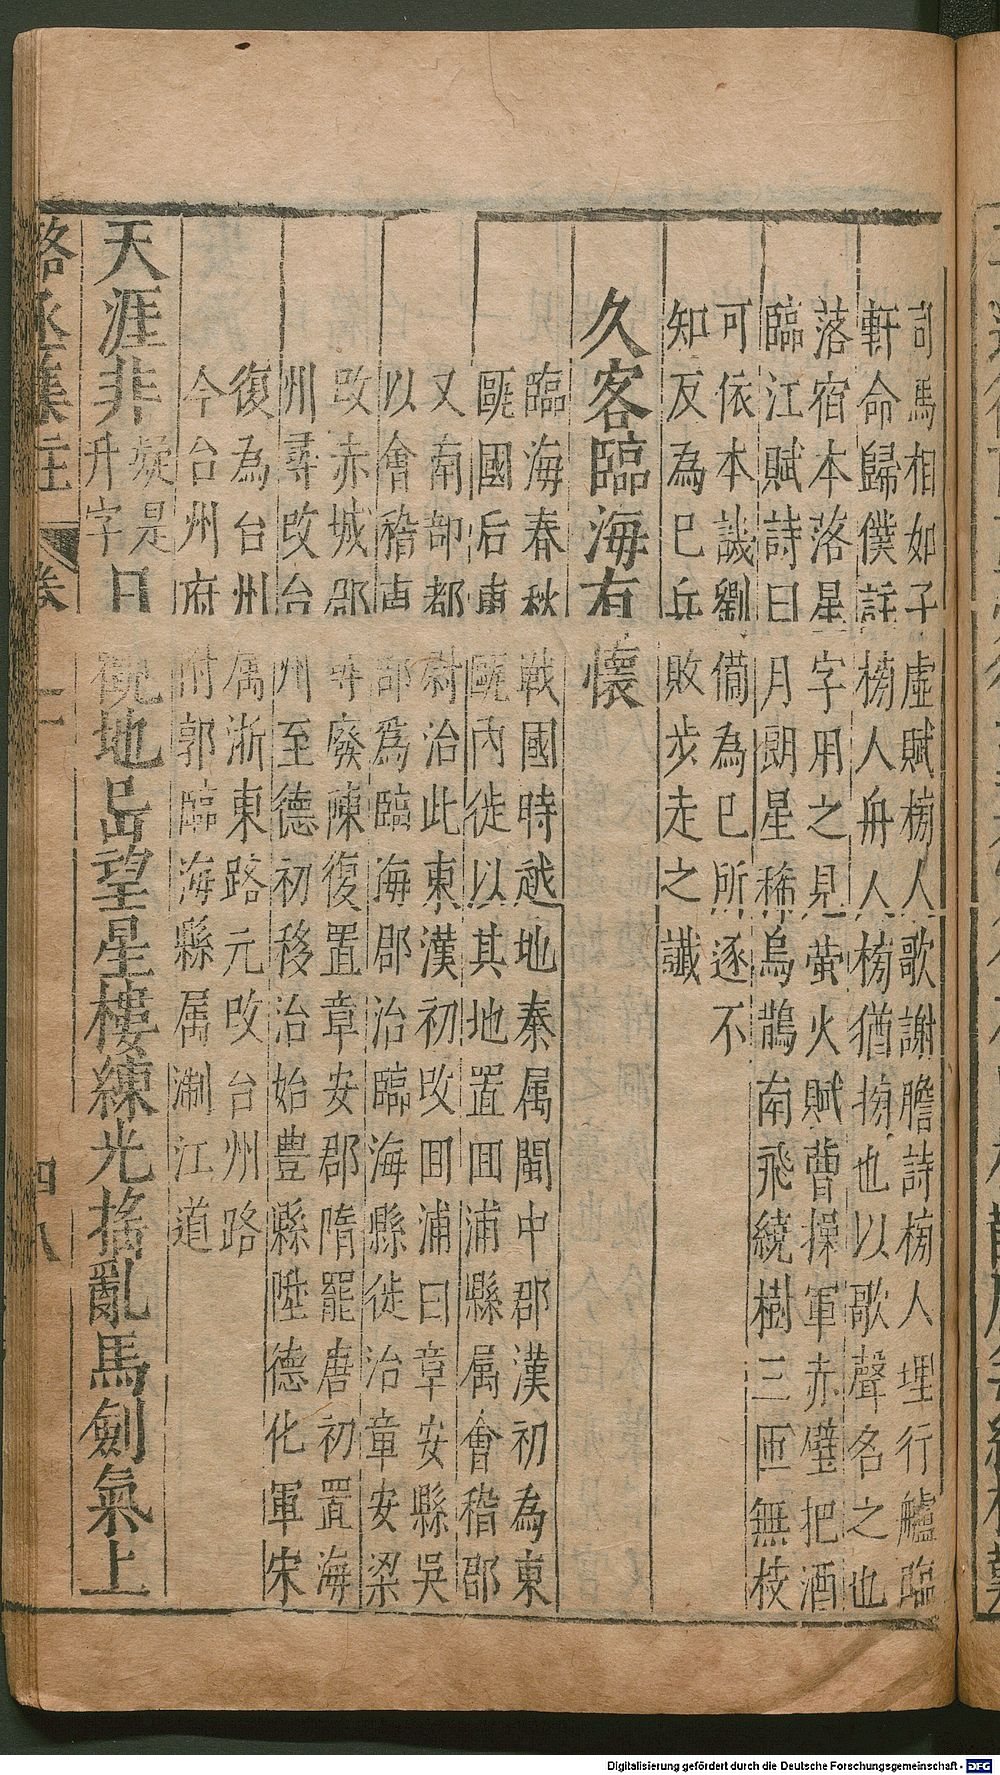 司馬相如子虛賦榜人歌謝膽詩榜人埋行艫臨
軒命歸僕註榜人舟人榜猶搒也以歌聲名之也
落宿本落星字用之見螢火賦曹操軍赤璧把酒
臨江賦詩曰月朗星稀烏鵲南飛繞樹三匝無枝
可依本譏劉備為已所逐不
知反為已兵敗步走之讖
久客臨海有懷
臨海春秋戰國時越地秦属閩中郡漢初為東
甌國后東甌內徙以其地置回浦縣属會稽郡
又南部都尉治此東漢初攺回浦曰章安縣吳
以會稽東部爲臨海郡治臨海縣徙治章安梁
攺赤城郡尋廢陳復置章安郡隋罷唐初置海
州尋攺台州至德初移治始豊縣陞德化軍宋
復為台州属浙東路元攺台州路
今台州府附郭臨海縣属淛江道
天涯非疑是升字日觀地岊望星樓練光搖亂馬劍氣上
駱丞集註 卷二 四八
Digitalisierung gefördert durch die Deutsche Forschungsgemeinschaft - DFG